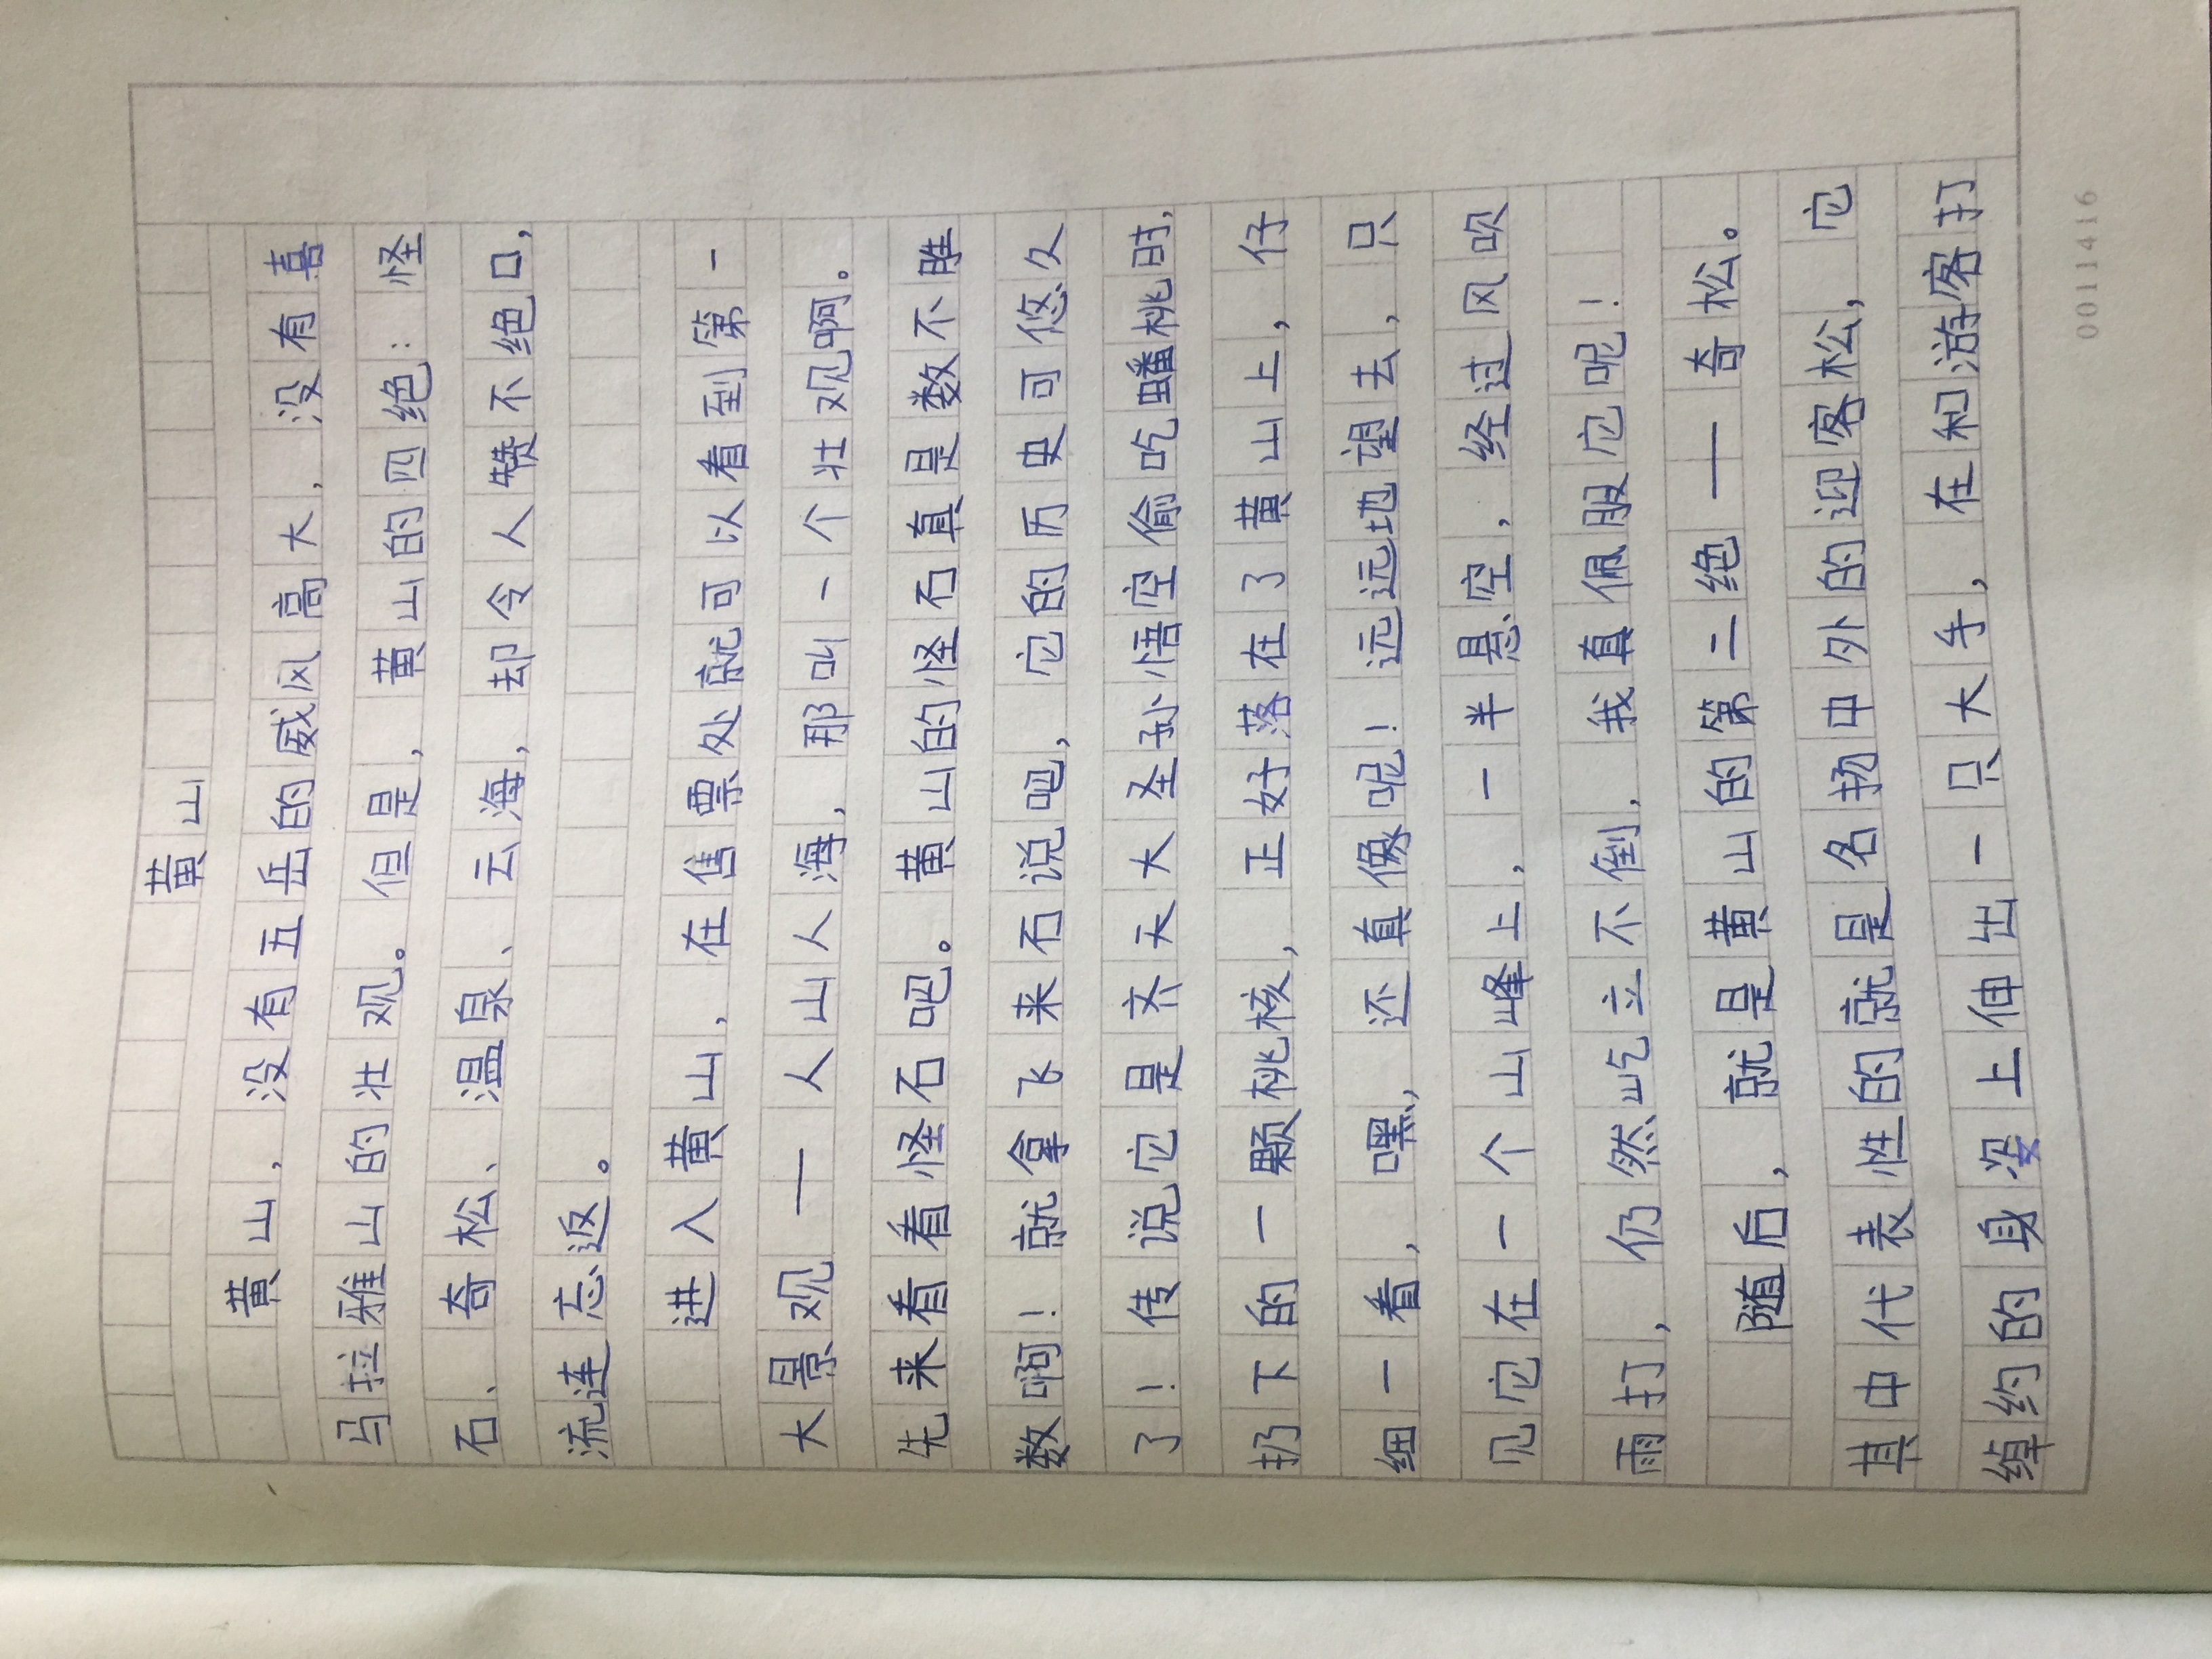 黄山
黄山，没有五岳的威风高大，没有喜
马拉雅山的壮观。但是，黄山的四绝：怪
石、奇松、温泉、云海，却令人赞不绝口，
流连忘返。
进入黄山，在售票处就可以看到第一
大景观——人山人海，那叫一个壮观啊。
先来看看怪石吧。黄山的怪石真是数不胜
数啊！就拿飞来石说吧，它的历史可悠久
了！传说它是齐天大圣孙悟空偷吃蟠桃时，
扔下的一颗桃核，正好落在了黄山上，仔
细一看，嘿，还真像呢！远远地望去，只
见它在一个山峰上，一半悬空，经过风吹
雨打，仍然屹立不倒，我真佩服它呢！
随后，就是黄山的第二绝——奇松。
其中代表性的就是名扬中外的迎客松，它
绰约的身姿上伸出一只大手，在和游客打
00111416